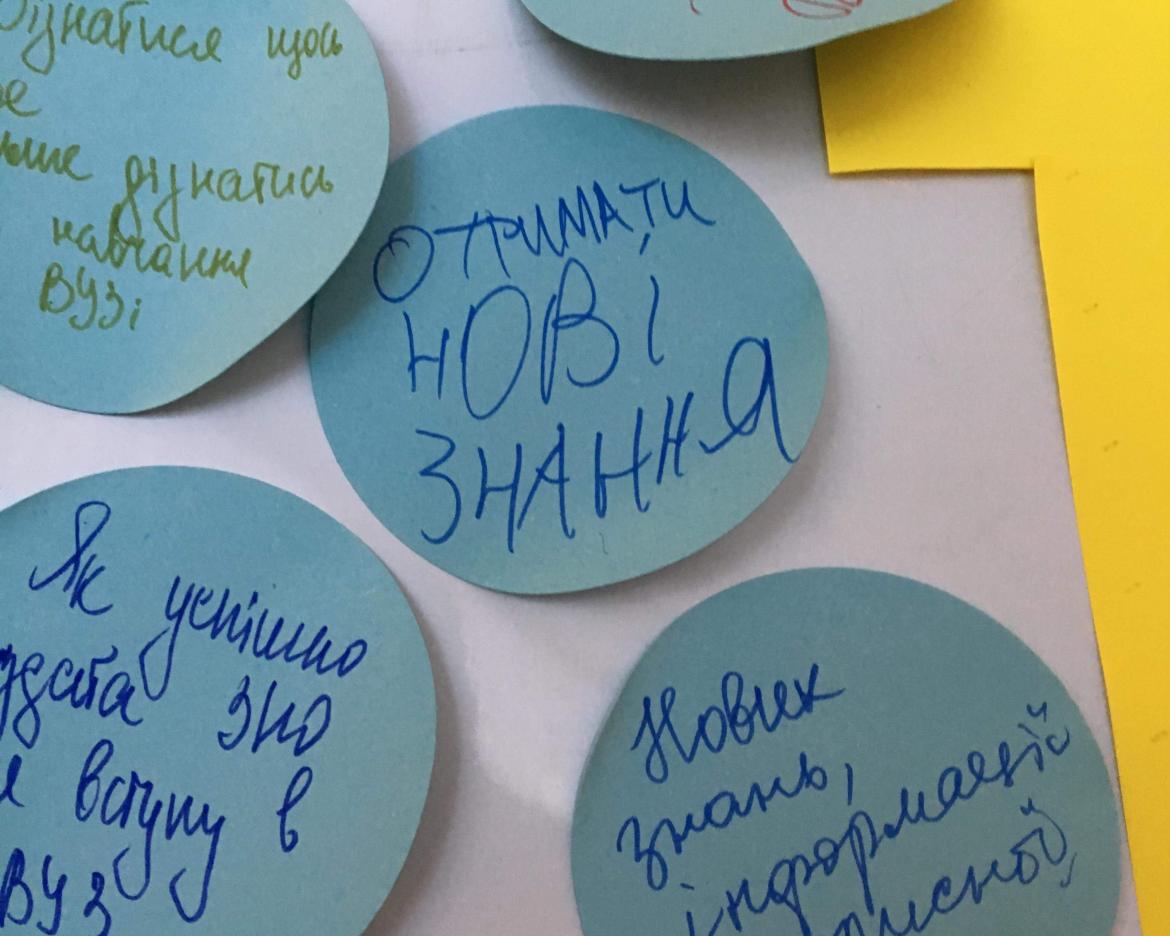 Дізнатися щось
дізнатись
навчання
ВУЗі
ОТРИМАТИ
НОВІ
ЗНАННЯ
Як успішно
здати ЗНО
вступу в
ВУЗ
Нових
знань,
інформації